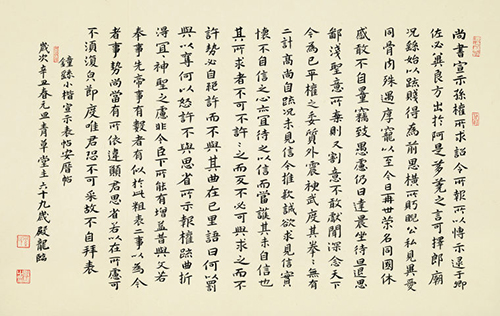 尚書宣示孫權所求詔令所報所以博示逮于卿
佐必冀良方出於阿是芻蕘之言可擇郎廟
況繇始以疏賤得為前恩橫所盻睨公私見異愛
同骨肉殊遇厚寵以至今日再世榮名同國休
慼敢不自量竊致愚慮仍日達晨坐待旦退思
鄙淺聖意所棄則又割意不敢獻聞深念天下
今為已平權之委質外震神武度其拳〻無有
二計高尚自疏況未見信今推款誠欲求見信實
懷不自信之心亦宜待之以信而當護其未自信也
其所求者不可不許〻之而反不必可與求之而不
許勢必自絕許而不與其曲在己里語曰何以罰
與以奪何以怒許不與思省所示報權疏曲折
得宜〻神聖之慮非今臣下所能有增益昔與文若
奉事先帝事有數者有似於此粗表二事以為今
者事勢尚當有所依違願君思省若以在所慮可
不須復貌節度唯君恐不可采故不自拜表
鍾繇小楷宣示表帖安曆帖
歲次辛丑春元旦青草堂主六十九歲殿龍臨